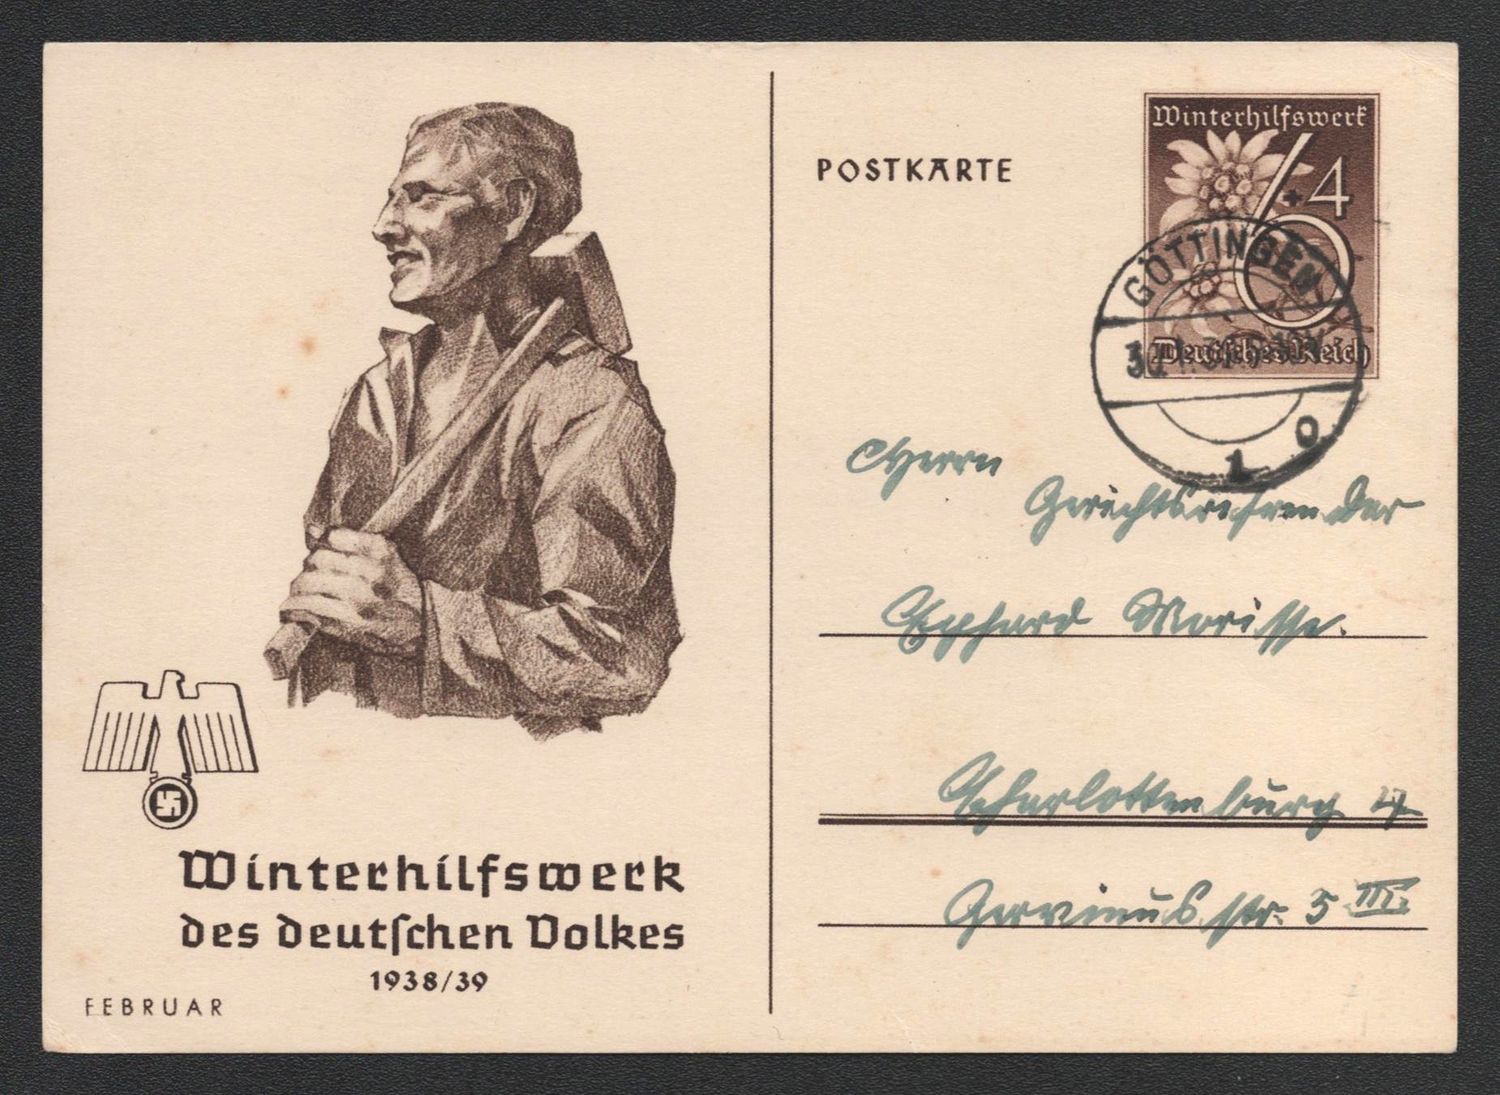 Winterhilfswerk
des deutschen Volkes
1938/39
FEBRUAR
POSTKARTE
Winterhilfswerk
6+4
Deutsches Reich
GÖTTINGEN
1 o
Herrn
Gerichtsreferendar
Morisse.
Charlottenburg 4
Gervinusstr. 5 III.